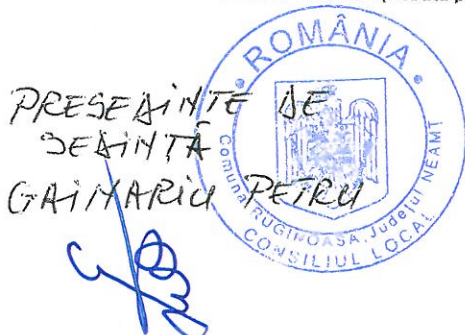 PRESEDINTE DE
SEDINTĂ
GAINARIU PETRU
ROMÂNIA
Comuna RUGINOASA, Județul NEAMȚ
CONSILIUL LOCAL